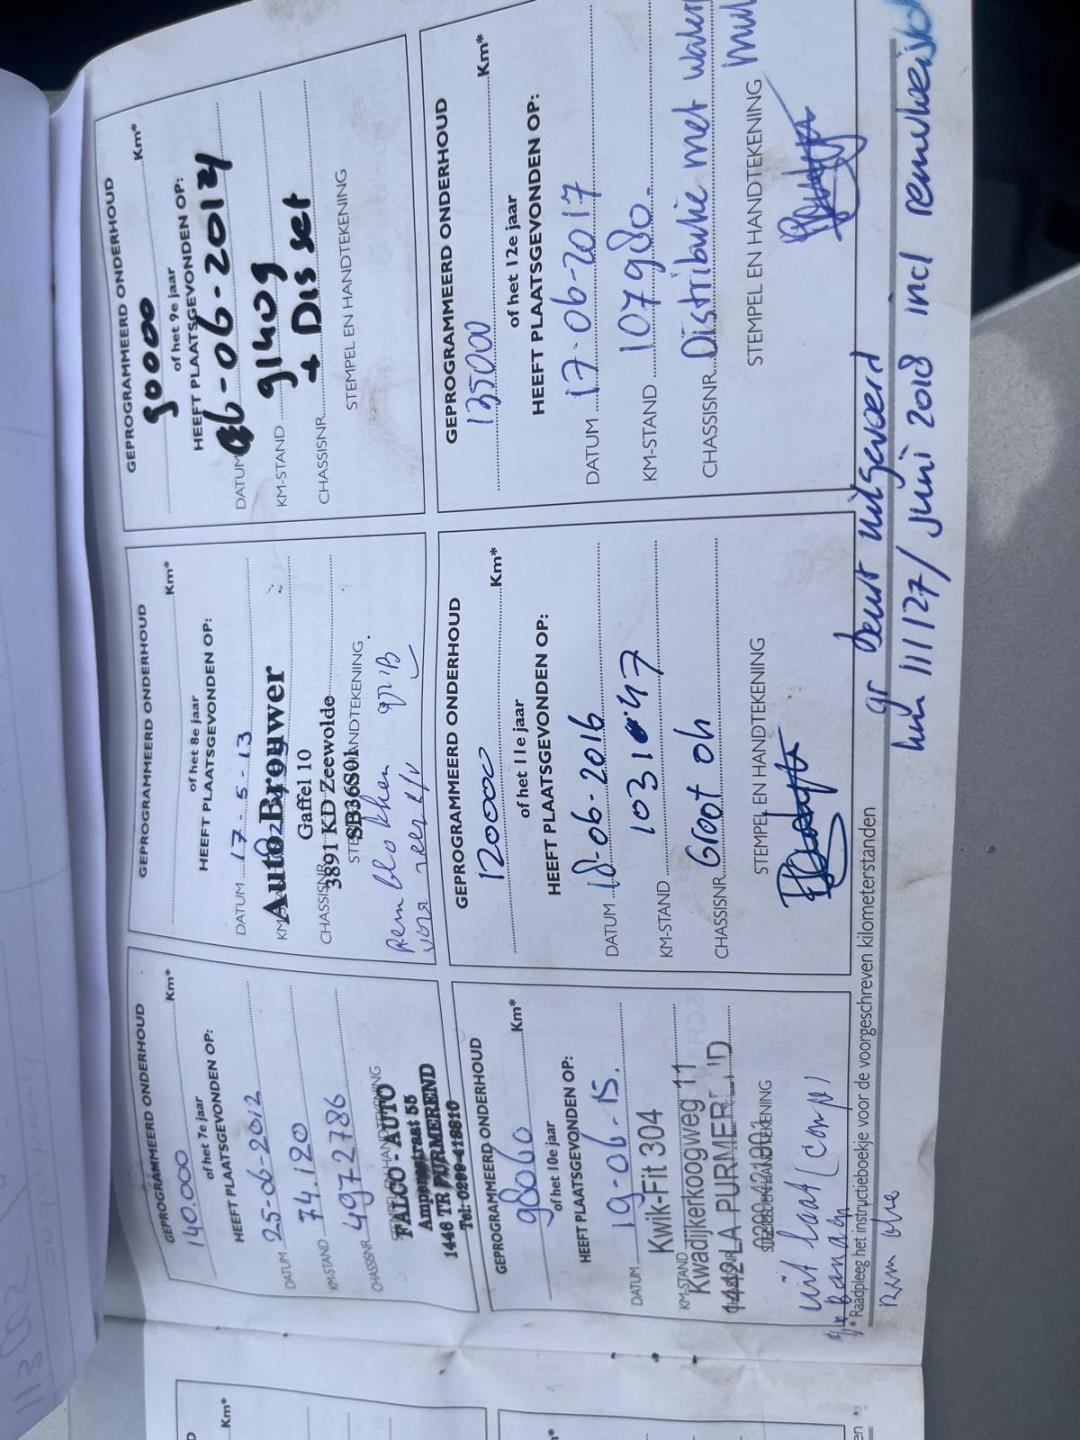 GEPROGRAMMEERD ONDERHOUD
140.000 Km*
of het 7e jaar
HEEFT PLAATSGEVONDEN OP:
DATUM 25-06-2012
KM-STAND 74.120
CHASSISNR. 4972786
STEMPEL EN HANDTEKENING
FALCO - AUTO
Ampèrestraat 55
1446 TR PURMEREND
Tel: 0299-418810
GEPROGRAMMEERD ONDERHOUD
Km*
of het 8e jaar
HEEFT PLAATSGEVONDEN OP:
DATUM 17-5-13
Auto Brouwer
Gaffel 10
CHASSISNR.
3891 KD Zeewolde
STEMPEL EN HANDTEKENING
SB36S01
Rem blokken
voor
GEPROGRAMMEERD ONDERHOUD
90000 Km*
of het 9e jaar
HEEFT PLAATSGEVONDEN OP:
DATUM 06-06-2014
KM-STAND 91409
CHASSISNR. + Dis set
STEMPEL EN HANDTEKENING
GEPROGRAMMEERD ONDERHOUD
98060 Km*
of het 10e jaar
HEEFT PLAATSGEVONDEN OP:
DATUM 19-06-15.
Kwik-Fit 304
KM-STAND
Kwadijkerkoogweg 11
1442 LA PURMEREND
STEMPEL EN HANDTEKENING
uit laat (compl
Banden
Rem olie
GEPROGRAMMEERD ONDERHOUD
120000 Km*
of het 11e jaar
HEEFT PLAATSGEVONDEN OP:
DATUM 18-06-2016
KM-STAND 103147
CHASSISNR. Groot oh
STEMPEL EN HANDTEKENING
GEPROGRAMMEERD ONDERHOUD
135000 Km*
of het 12e jaar
HEEFT PLAATSGEVONDEN OP:
DATUM 17-06-2017
KM-STAND 107980
CHASSISNR. Distributie met water
STEMPEL EN HANDTEKENING
* Raadpleeg het instructieboekje voor de voorgeschreven kilometerstanden
gr beurt uitgevoerd
km 111127/juni 2018 incl
Km*